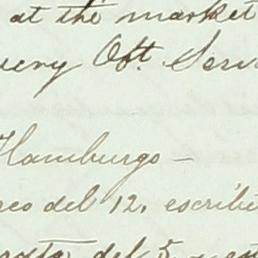 at the market
Obt. Serv
Hamburgo —
del 12, escribi
del 5. y